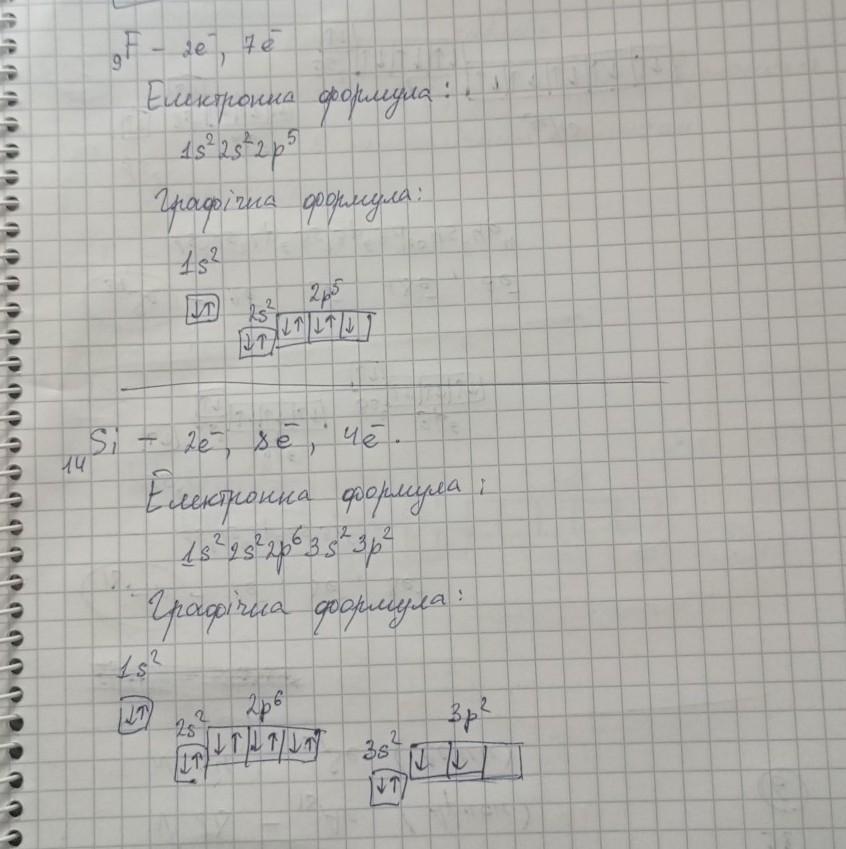 ₉F – 2e⁻, 7e⁻
Електронна формула:
1s² 2s² 2p⁵
Графічна формула:
1s²
2s² 2p⁵
↓↑ ↓↑ ↓↑ ↓↑ ↓
₁₄Si – 2e⁻, 8e⁻, 4e⁻.
Електронна формула:
1s² 2s² 2p⁶ 3s² 3p²
Графічна формула:
1s²
2s² 2p⁶ 3s² 3p²
↓↑ ↓↑ ↓↑ ↓↑ ↓↑ ↓↑ ↓ ↓